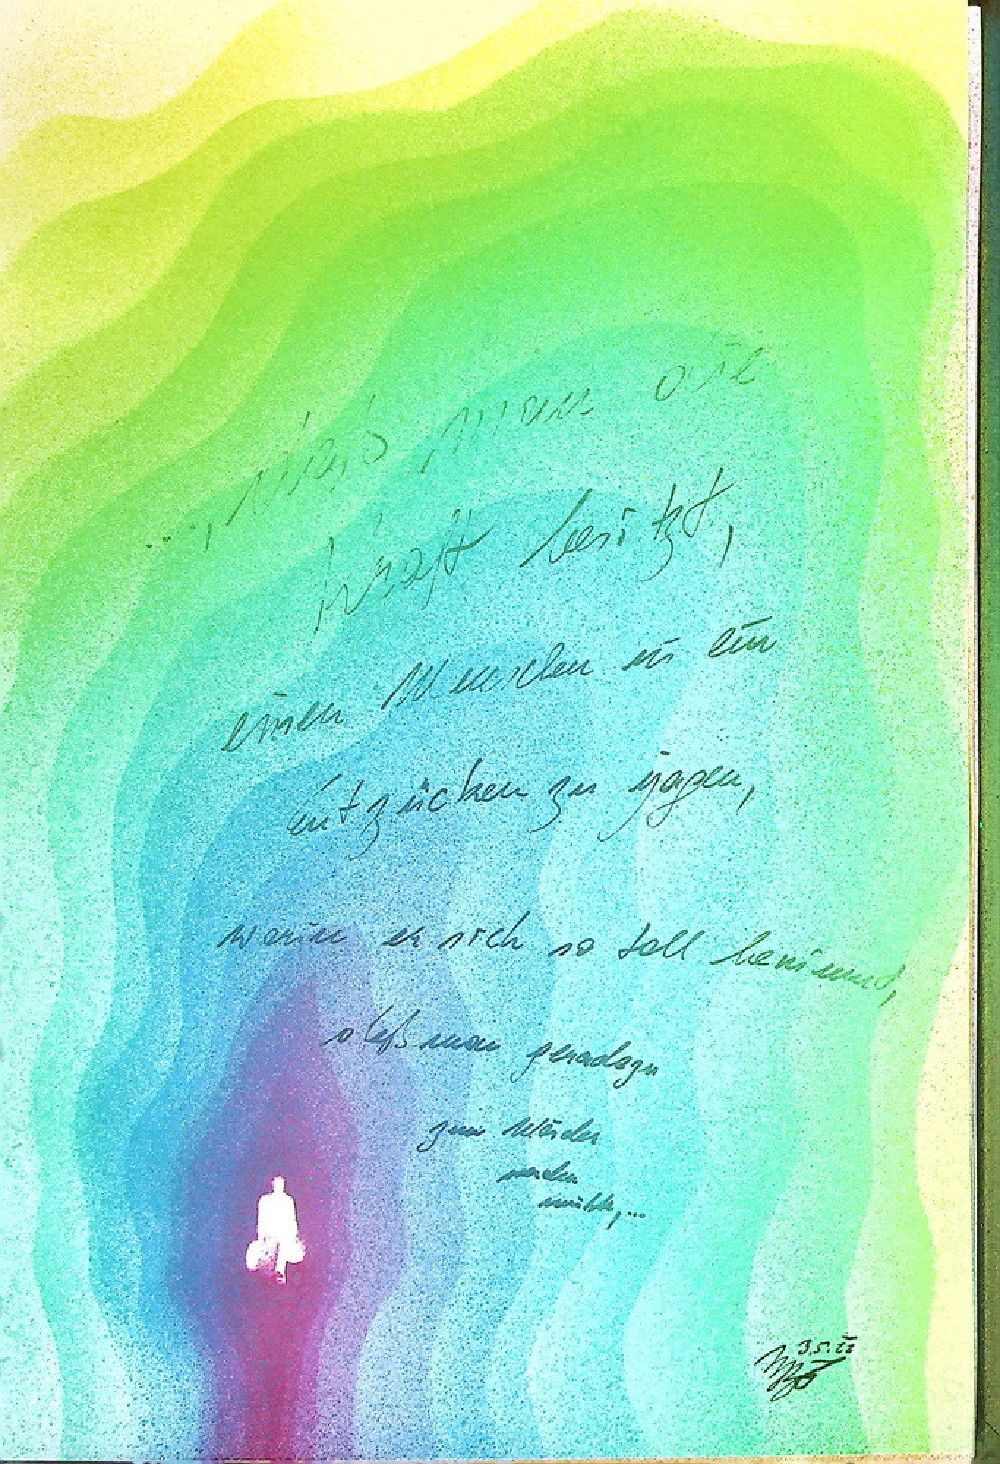 ..., daß man die
Kraft besitzt,
einen Menschen in ein
Entzücken zu jagen,
worin er sich so toll benimmt,
daß man geradezu
zum Mörder
werden
müßte,...
3.5.